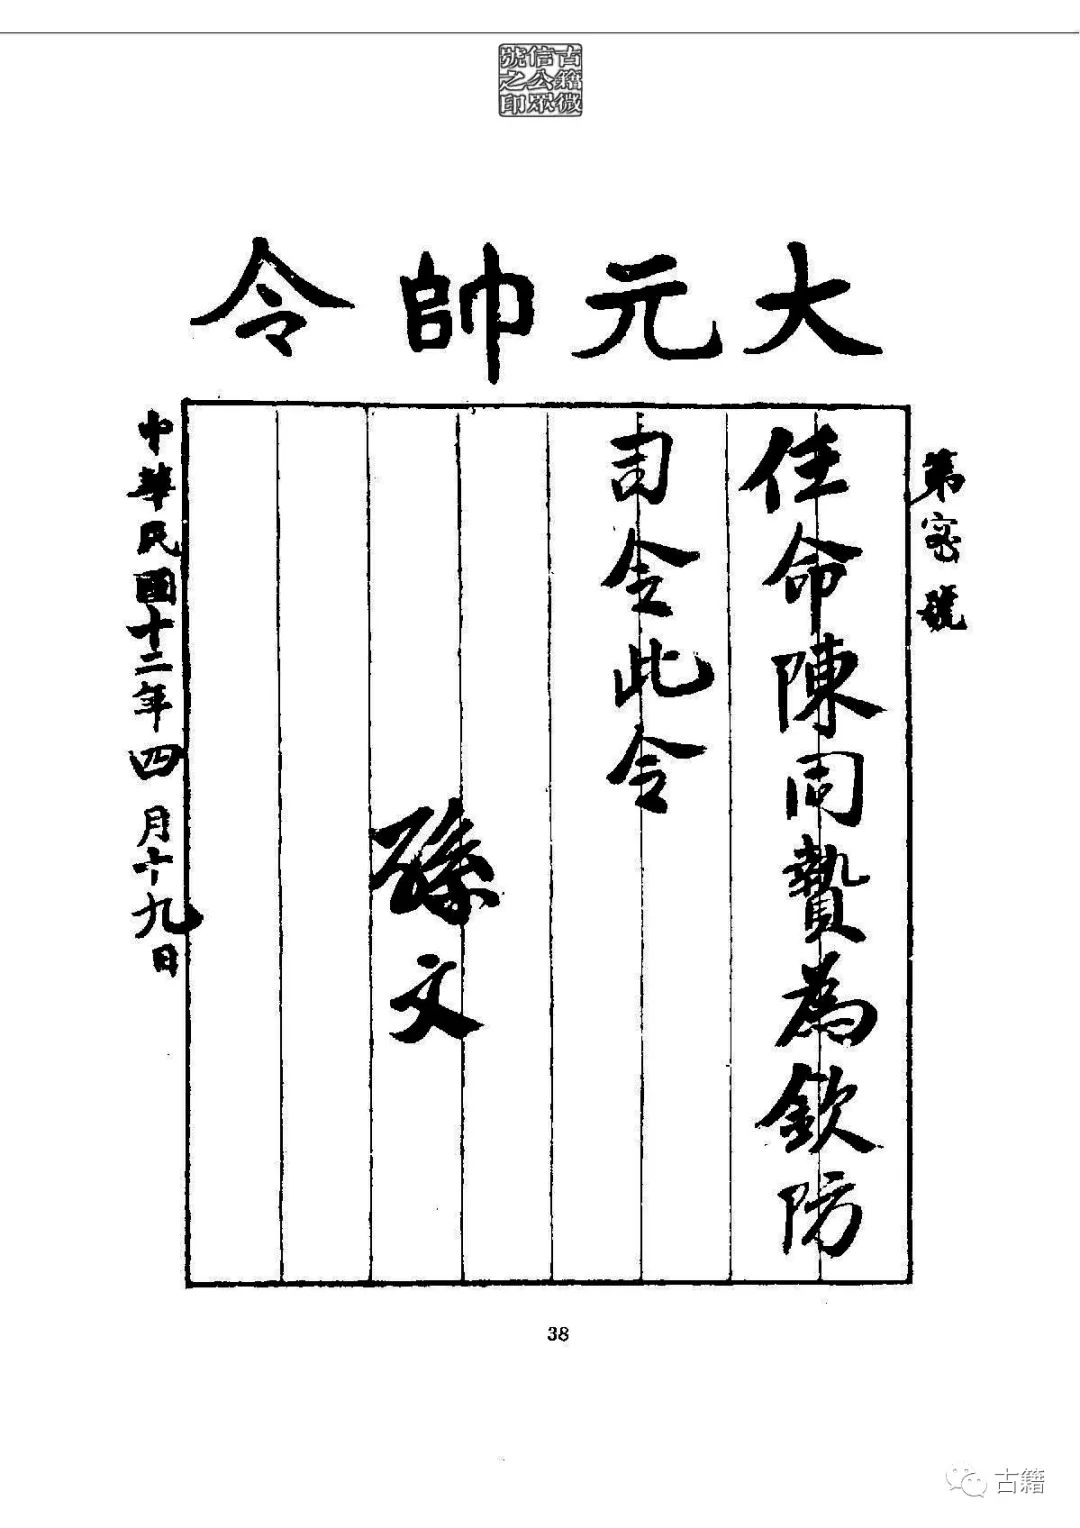 古籍微
信公眾
號之印
大元帥令
第密號
任命陳同贄為欽防
司令此令
孫文
中華民國十二年四月十九日
38
古籍